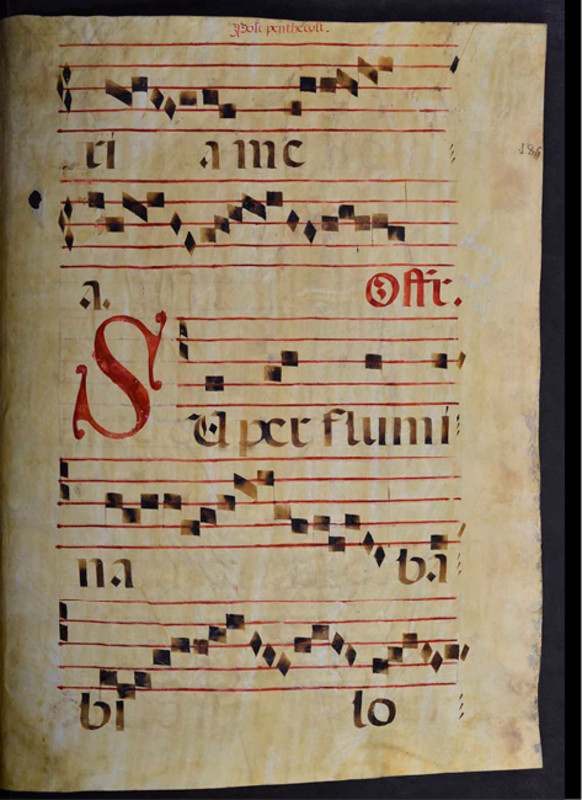 Post penthecost.
ri ame
a. Offr.
SUper flumi
na ba
bi lo